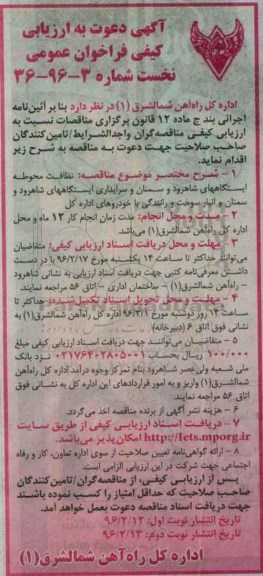 آگهی دعوت به ارزیابی
کیفی فراخوان عمومی
نخست شماره ۳-۹۶-۳۶
اداره کل راه‌آهن شمالشرق (۱)در نظر دارد بنا بر آئین‌نامه
اجرائی بند ج ماده ۱۲ قانون برگزاری مناقصات نسبت به
ارزیابی کیفی مناقصه‌گران واجدالشرایط/تامین‌کنندگان
صاحب صلاحیت جهت دعوت به مناقصه به شرح زیر
اقدام نماید.
۱ - شرح مختصر موضوع مناقصه: نظافت محوطه
ایستگاههای شاهرود و سمنان و سرایداری ایستگاههای شاهرود و
سمنان و انبار سوخت و رانندگی با خودروهای اداره کل
۲ - مدت و محل انجام: مدت زمان انجام کار ۱۲ ماه و محل
اداره کل راه‌آهن شمالشرق(۱) می‌باشد.
۳ - مهلت و محل دریافت اسناد ارزیابی کیفی: متقاضیان
می‌توانند حداکثر تا ساعت ۱۴ یکشنبه مورخ ۹۶/۲/۱۷ با در دست
داشتن معرفی‌نامه کتبی جهت دریافت اسناد ارزیابی به نشانی شاهرود
- راه‌آهن شمالشرق(۱) - ساختمان اداری - اتاق ۵۶ مراجعه نمایند.
۴ - مهلت و محل تحویل اسناد تکمیل‌شده: حداکثر تا
ساعت ۱۴ روز دوشنبه مورخ ۹۶/۳/۱ اداره کل راه‌آهن شمالشرق(۱) به
نشانی فوق اتاق ۶ (دبیرخانه)
۵ - متقاضیان می‌توانند جهت دریافت اسناد ارزیابی کیفی مبلغ
۱۰۰/۰۰۰ ریال بحساب ۰۲۱۷۶۴۰۲۸۰۵۰۰۱ نزد بانک
ملی شعبه ولی عصر شاهرود بنام تمرکز وجوه درآمد اداره کل راه‌آهن
شمالشرق(۱) واریز و به امور قراردادهای این اداره کل به نشانی فوق
اتاق ۵۶ مراجعه نمایند.
۶ - هزینه نشر آگهی از برنده مناقصه اخذ می‌گردد.
۷ - دریافت اسناد ارزیابی کیفی از طریق سایت
http://Iets.mporg.ir امکان‌پذیر می‌باشد.
۸ - ارائه گواهی‌نامه تعیین صلاحیت از سوی اداره تعاون، کار و رفاه
اجتماعی جهت شرکت در این ارزیابی الزامی است.
پس از ارزیابی کیفی، از مناقصه‌گران/تامین‌کنندگان
صاحب صلاحیت که حداقل امتیاز را کسب نموده باشند
جهت دریافت اسناد مناقصه دعوت بعمل خواهد آمد.
تاریخ انتشار نوبت اول: ۹۶/۲/۱۲
تاریخ انتشار نوبت دوم: ۹۶/۲/۱۳
اداره کل راه‌آهن شمالشرق(۱)